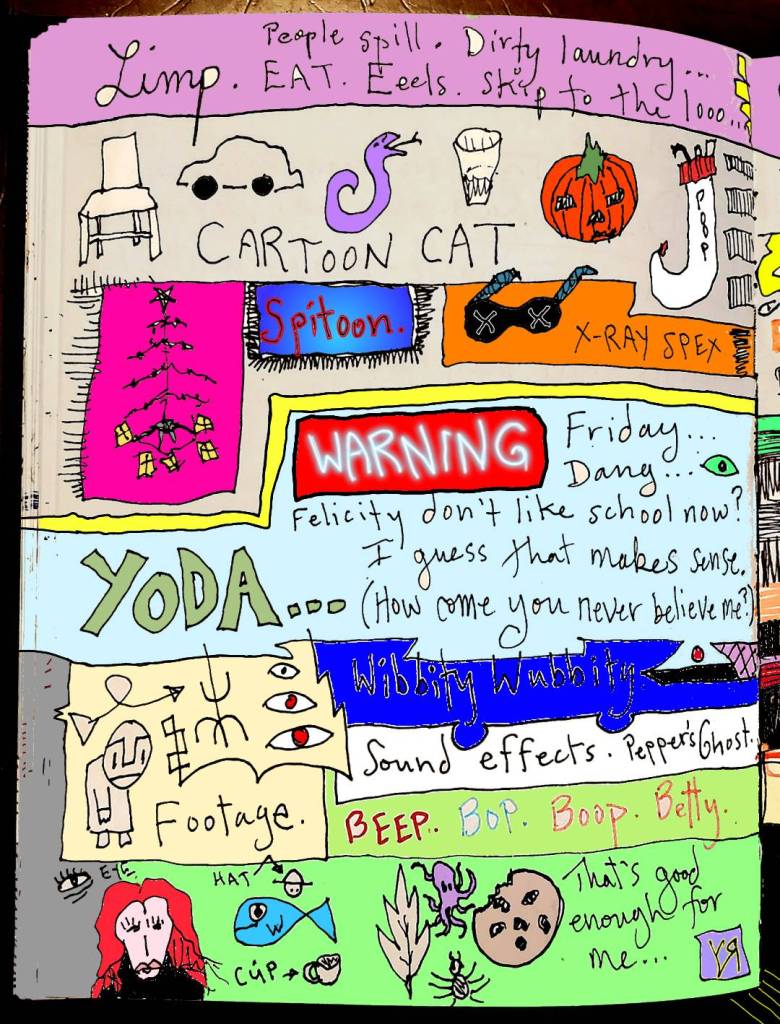 People spill. Dirty laundry...
Limp. EAT. Eeels. Skip to the looo...
POOP
CARTOON CAT
Spitoon.
X-RAY SPEX
WARNING
Friday...
Dang...
Felicity don't like school now?
I guess that makes sense.
YODA...
(How come you never believe me?)
Wibbity Wubbity
Sound effects. Pepper's Ghost.
Footage.
BEEP. BOP. Boop. Betty.
EYE
HAT
W
CUP
That's good
enough for
me...